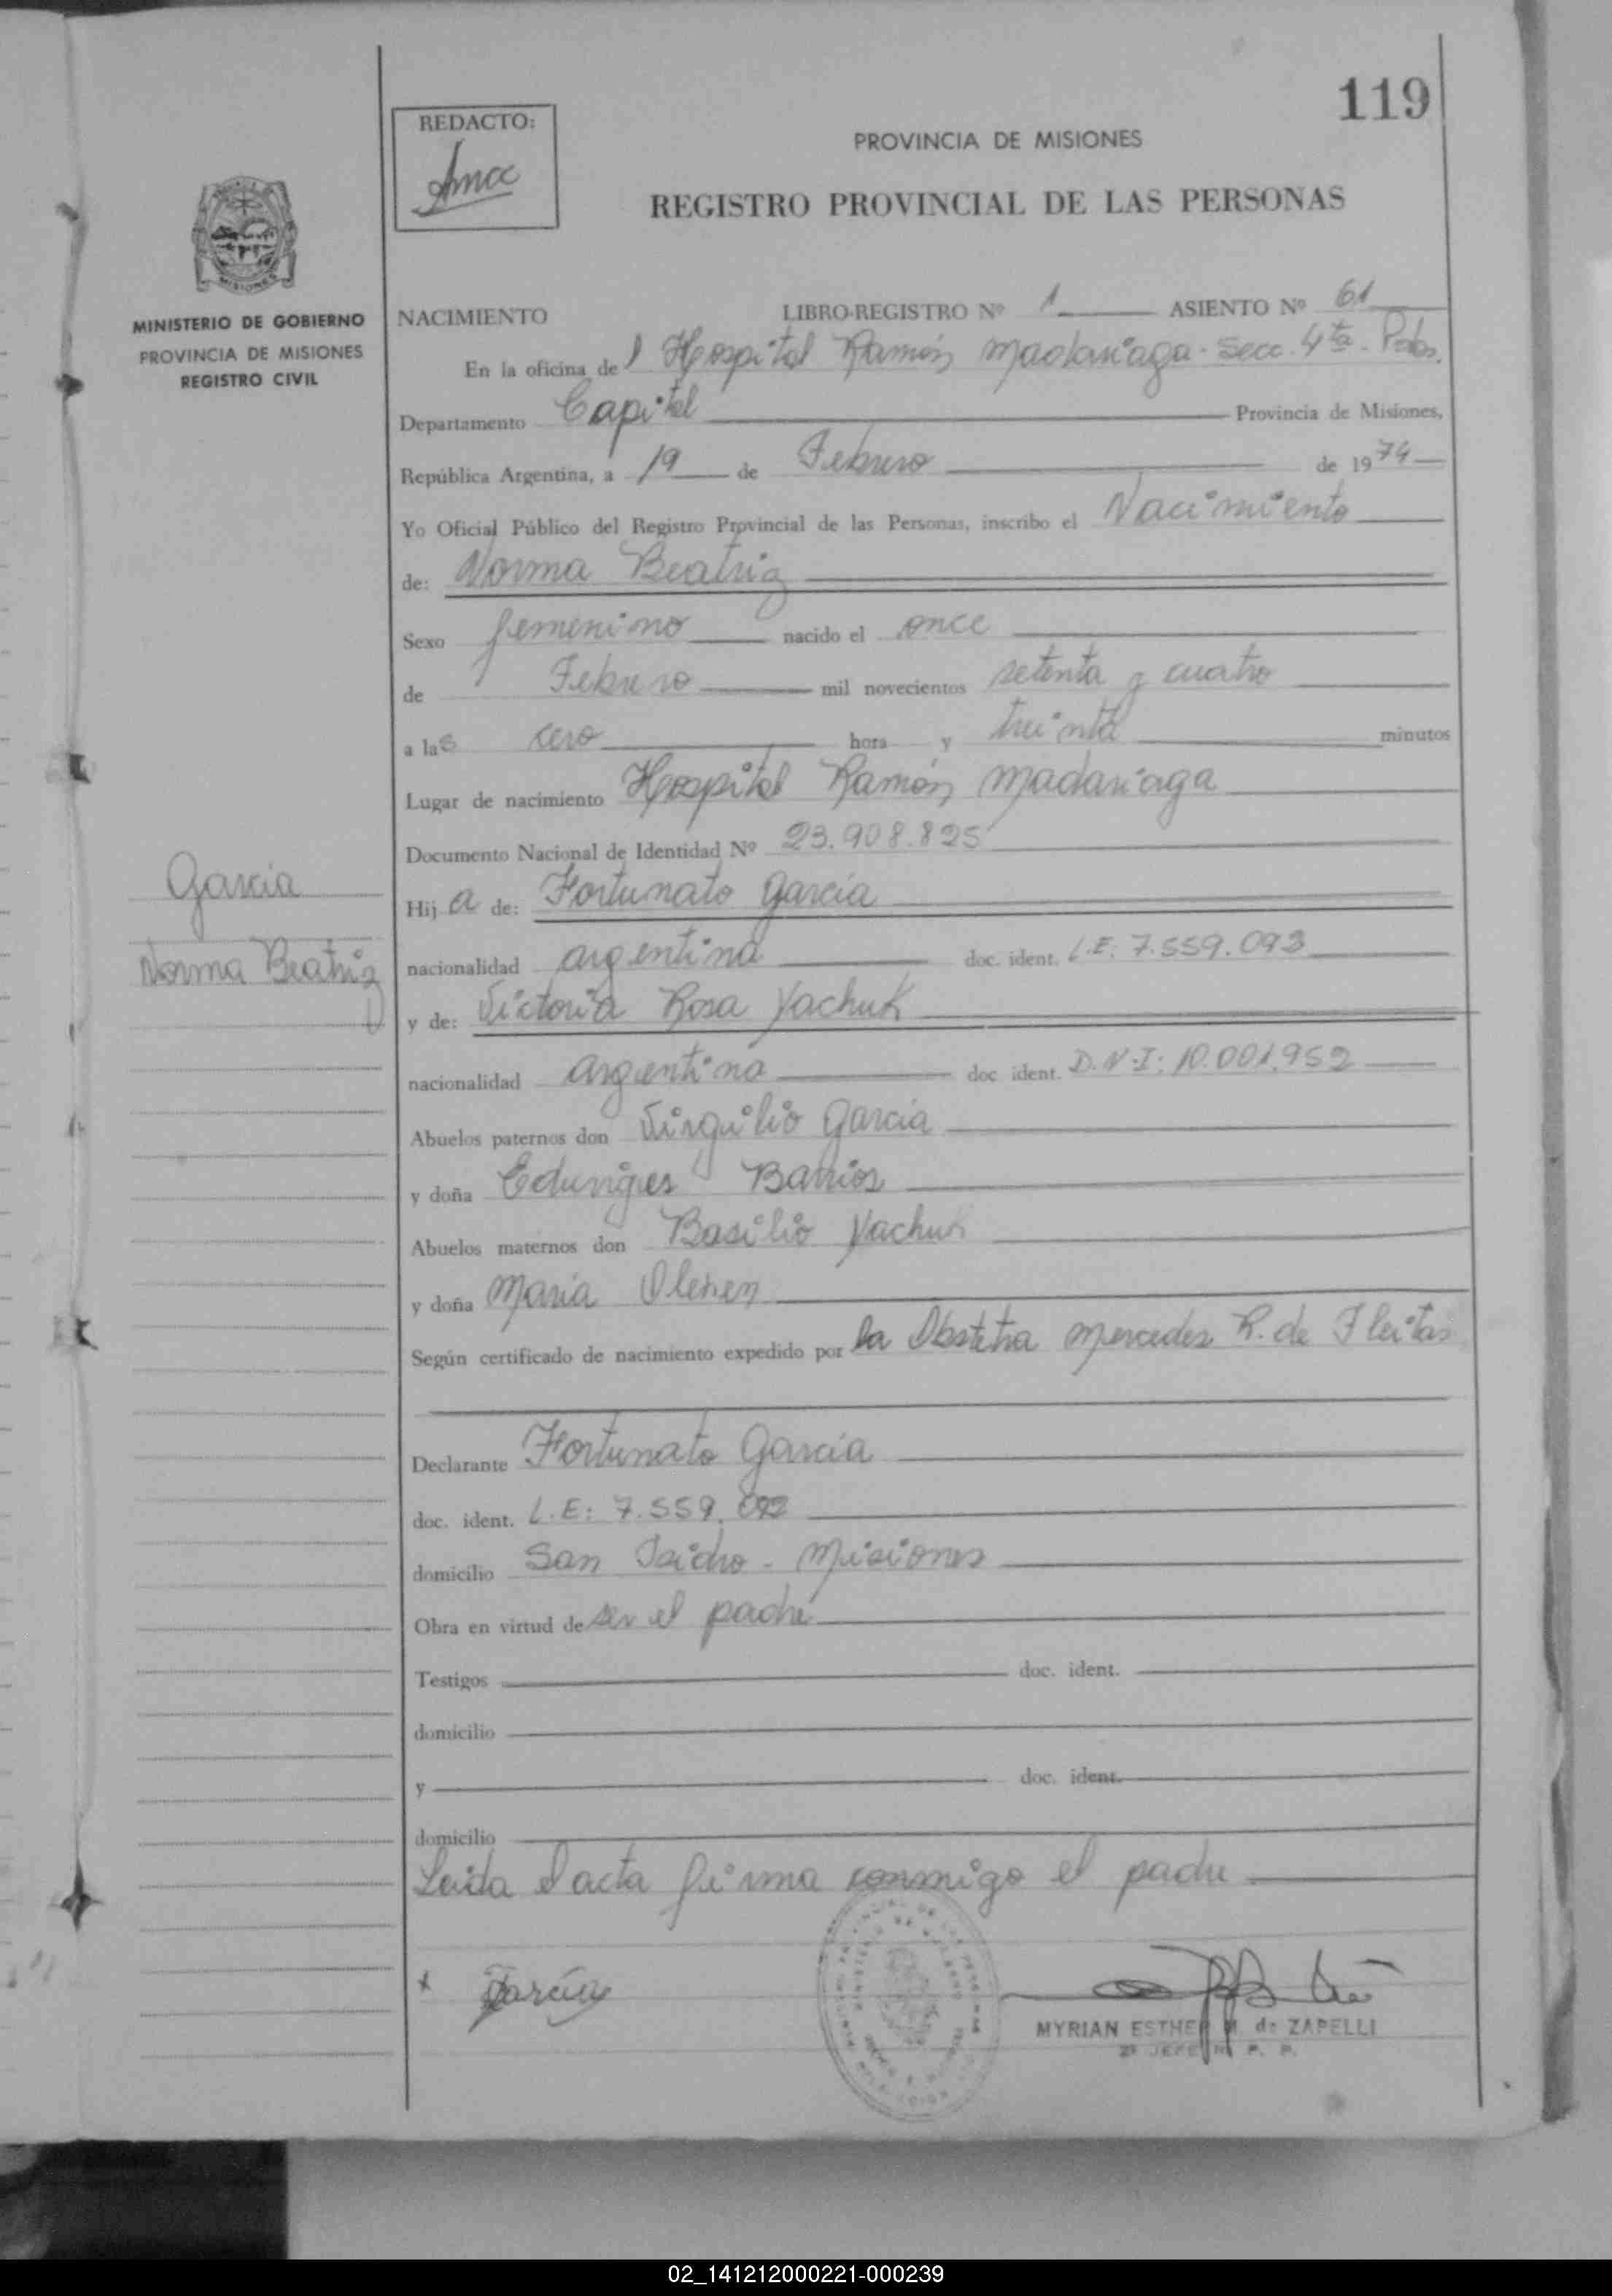 119
REDACTO:
PROVINCIA DE MISIONES
REGISTRO PROVINCIAL DE LAS PERSONAS
MISIONES
MINISTERIO DE GOBIERNO
PROVINCIA DE MISIONES
REGISTRO CIVIL
NACIMIENTO LIBRO-REGISTRO Nº 1 ASIENTO Nº 61
En la oficina del Hospital Ramón Madariaga - Secc. 4ta - Pdas.
Departamento Capital Provincia de Misiones,
República Argentina, a 19 de Febrero de 1974
Yo Oficial Público del Registro Provincial de las Personas, inscribo el Nacimiento
de: Norma Beatriz
Sexo femenino nacido el once
de Febrero mil novecientos setenta y cuatro
a las cero hora y treinta minutos
Lugar de nacimiento Hospital Ramón Madariaga
Documento Nacional de Identidad Nº 23.908.825
Garcia
Norma Beatriz
Hija de: Fortunato Garcia
nacionalidad argentina doc. ident. L.E: 7.559.093
y de: Victoria Rosa Yachuk
nacionalidad argentina doc. ident. D.N.I: 10.001.952
Abuelos paternos don Virgilio Garcia
y doña Eduviges Barrios
Abuelos maternos don Basilio Yachuk
y doña Maria
Según certificado de nacimiento expedido por la Obstetra Mercedes R. de Fleitas
Declarante Fortunato Garcia
doc. ident. L.E: 7.559.
domicilio San Isidro - Misiones
Obra en virtud de ser el padre
Testigos doc. ident.
domicilio
y doc. ident.
domicilio
Leida el acta firma conmigo el padre
x Garcia
MYRIAN ESTHER M. de ZAPELLI
02_141212000221-000239